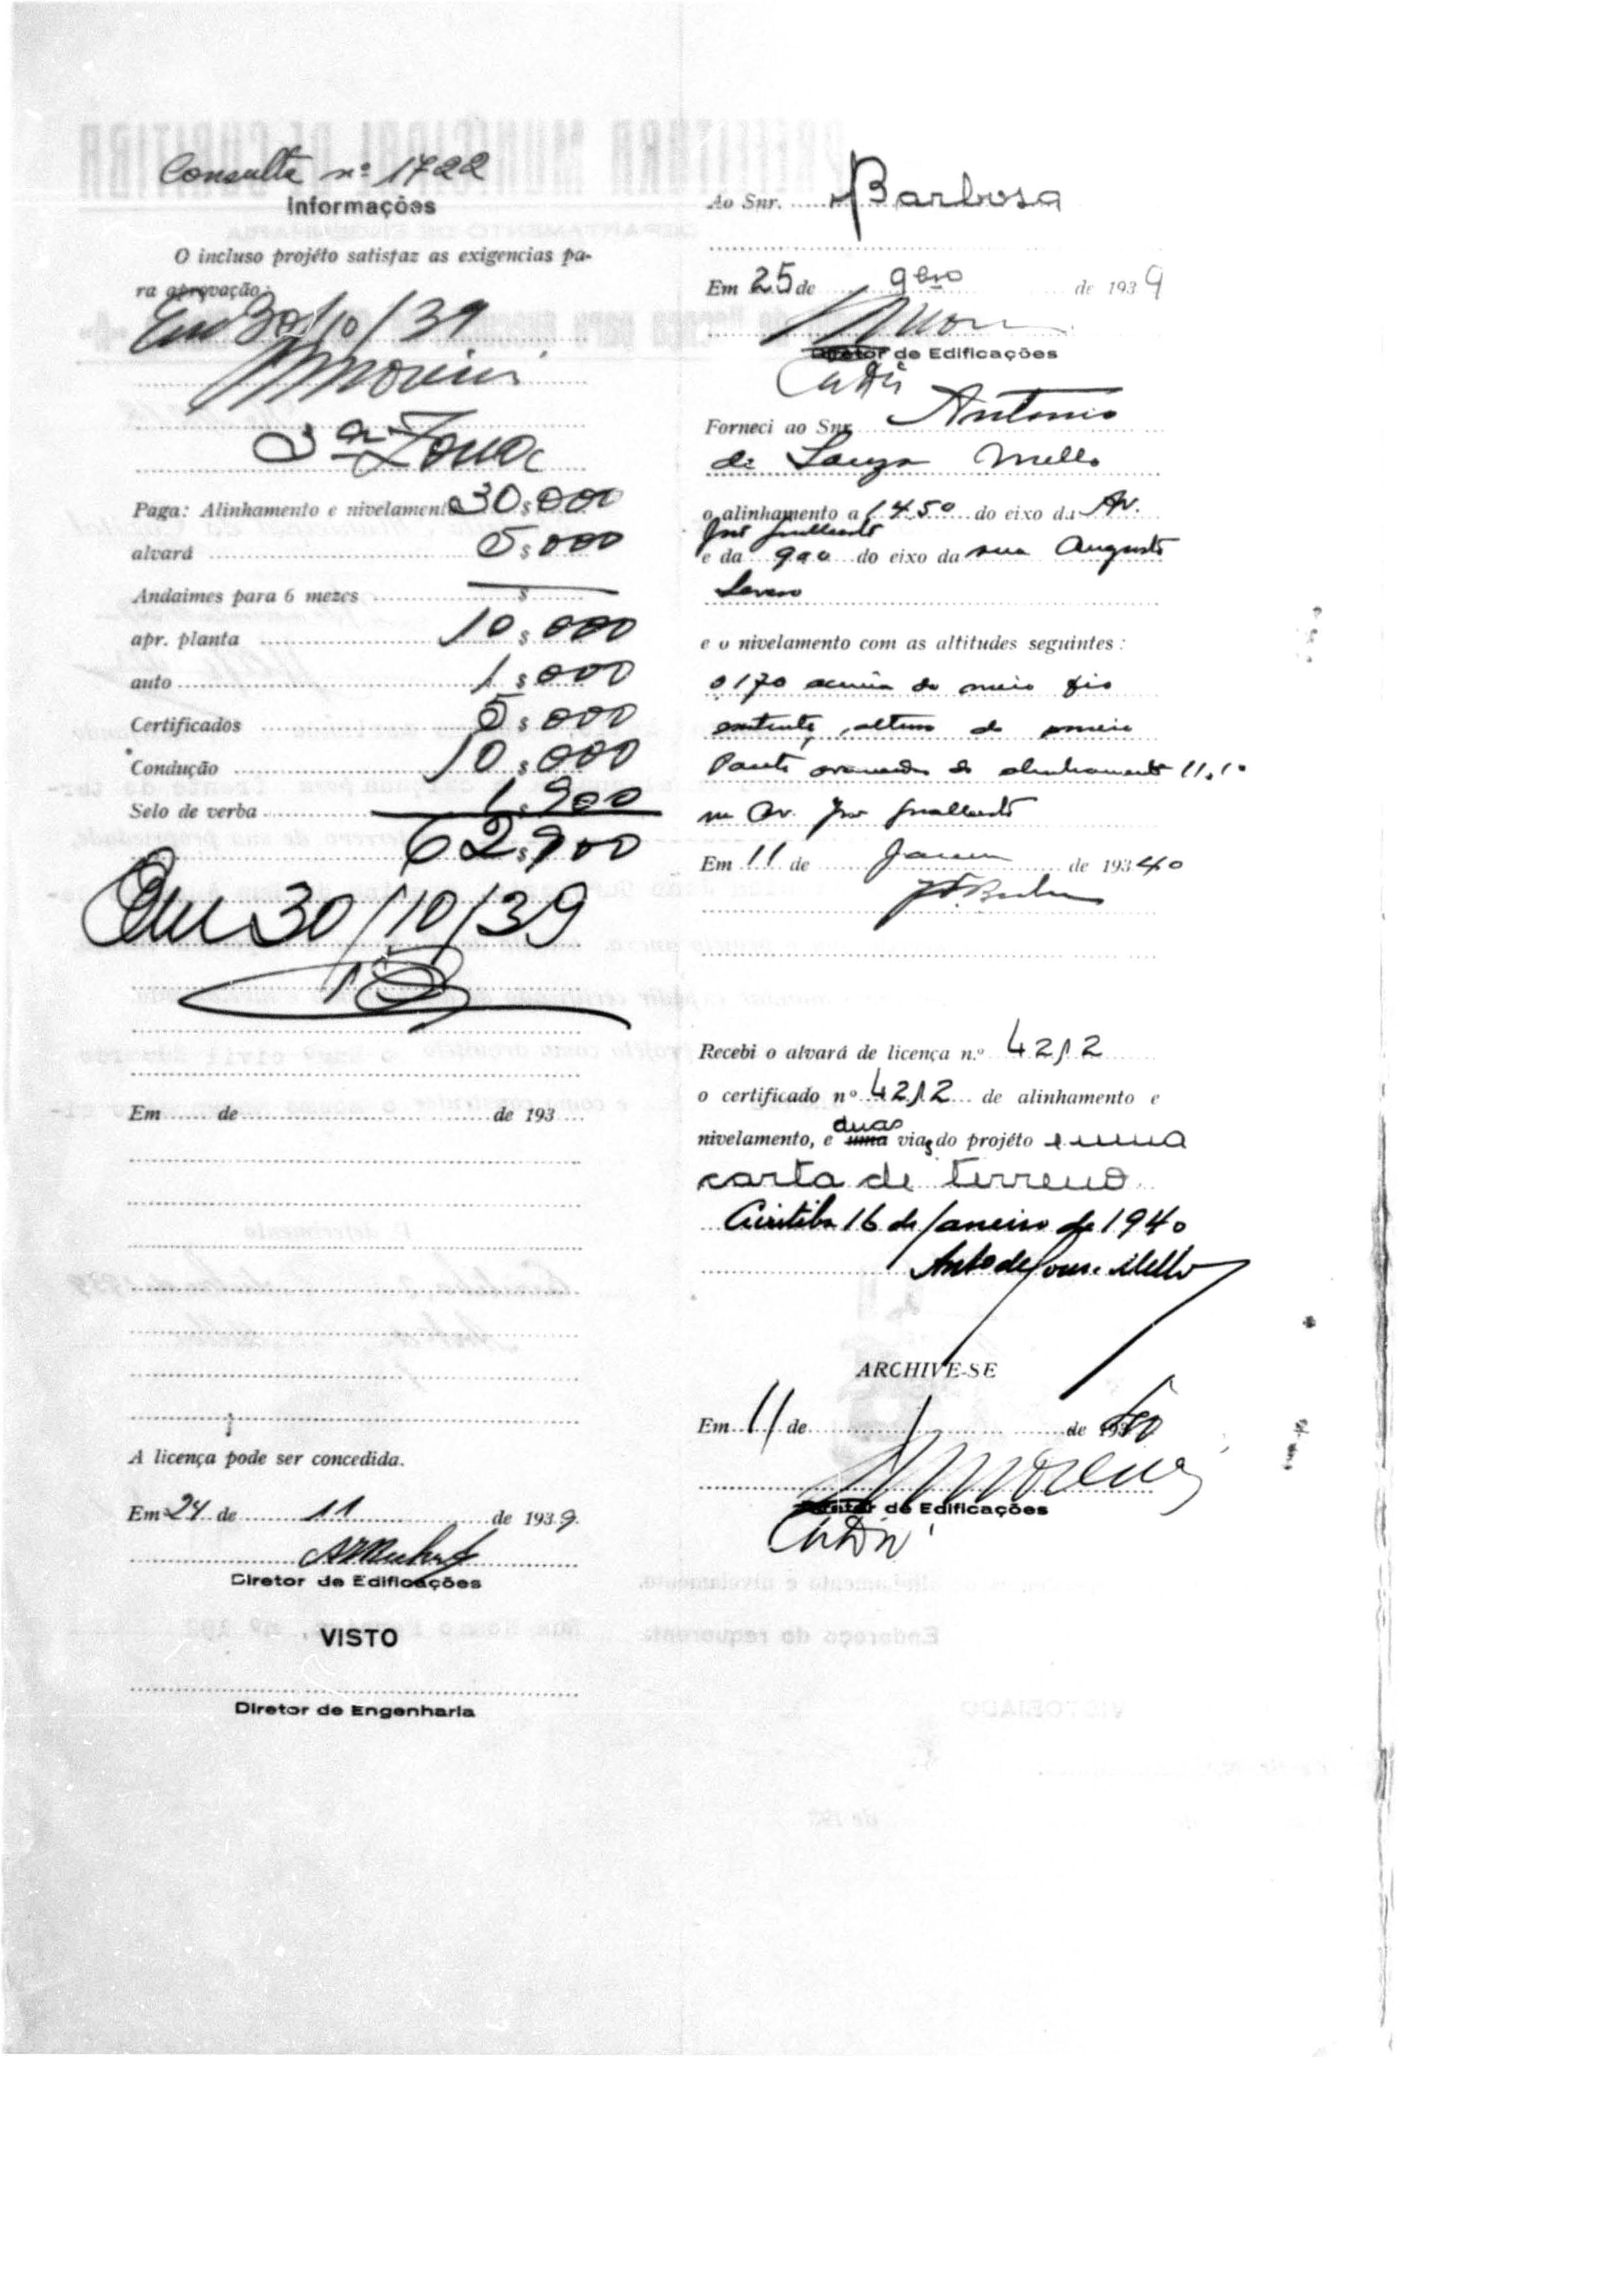 Consulta nº 1722
Informações
O incluso projéto satisfaz as exigencias pa-
ra aprovação:
Em 30/10/39
3ª Zona
Paga: Alinhamento e nivelamento 30$000
alvará 5$000
Andaimes para 6 mezes $
apr. planta 10$000
auto 1$000
Certificados 5$000
Condução 10$000
Selo de verba 1$900
62$900
Em 30/10/39
Em de de 193
A licença pode ser concedida.
Em 24 de 11 de 1939.
Diretor de Edificações
VISTO
Diretor de Engenharia
Ao Snr. Barbosa
Em 25 de 9bro de 1939
Diretor de Edificações
Forneci ao Snr. Antonio
de Souza Mello
o alinhamento a 14.50 do eixo da Av.
e da 9,00 do eixo da rua Augusto
e o nivelamento com as altitudes seguintes:
0,170 acima do meio fio
existente, altura do passeio
alinhamento 11,10
na Av.
Em 11 de de 19340
Recebi o alvará de licença n.º 4212
o certificado nº 4212 de alinhamento e
nivelamento, e uma duas vias do projéto e uma
carta de terreno.
Curitiba 16 de Janeiro de 1940
Anto de Souza Mello
ARCHIVE-SE
Em 11 de 1 de 19340
Moreira
Diretor de Edificações